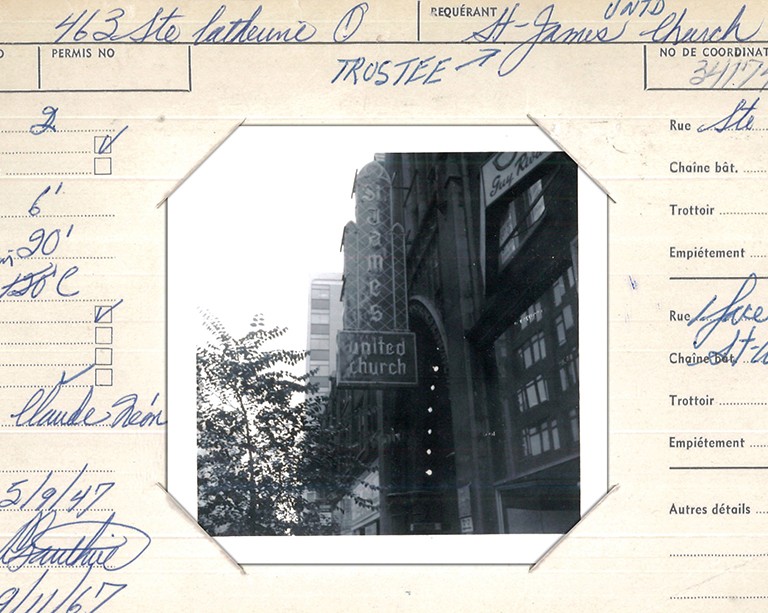 463 Ste Catherine O
REQUÉRANT St-James UNTD Church
PERMIS NO
TRUSTEE
NO DE COORDINAT
34174
2
6'
20'
Claude Néon
5/9/47
Gauthier
9/11/67
St James
united
church
Guy
Rue Ste
Chaîne bât.
Trottoir
Empiétement
Rue
Chaîne bât.
Trottoir
Empiétement
Autres détails